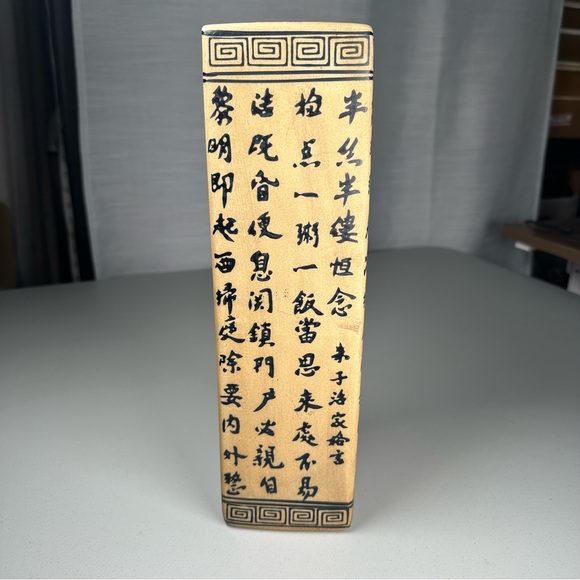 黎明即起西掃庭除要内外整
洁既昏便息関鎖門户必親自
检点一粥一飯當思来處不易
半丝半縷恒念
朱子治家格言